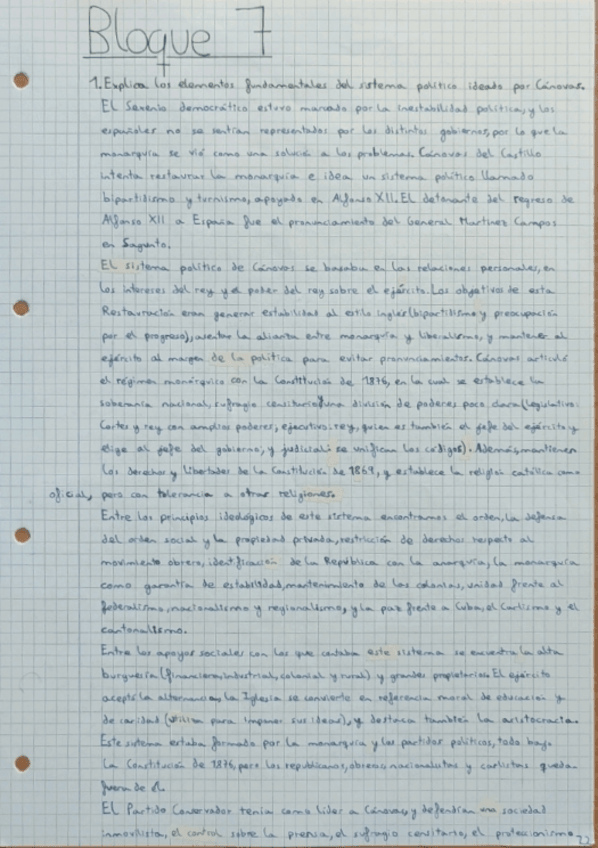 Bloque 7
1. Explica los elementos fundamentales del sistema político ideado por Cánovas.
El Sexenio democrático estuvo marcado por la inestabilidad política, y los
españoles no se sentían representados por los distintos gobiernos, por lo que la
monarquía se vió como una solución a los problemas. Cánovas del Castillo
intenta restaurar la monarquía e idea un sistema político llamado
bipartidismo y turnismo, apoyado en Alfonso XII. El detonante del regreso de
Alfonso XII a España fue el pronunciamiento del General Martínez Campos
en Sagunto.
El sistema político de Cánovas se basaba en las relaciones personales, en
los intereses del rey y el poder del rey sobre el ejército. Los objetivos de esta
Restauración eran generar estabilidad al estilo inglés (bipartidismo y preocupación
por el progreso), asentar la alianza entre monarquía y liberalismo, y mantener al
ejército al margen de la política para evitar pronunciamientos. Cánovas articuló
el régimen monárquico con la Constitución de 1876, en la cual se establece la
soberanía nacional, sufragio censitario, una división de poderes poco clara (legislativo:
Cortes y rey con amplios poderes, ejecutivo: rey, quien es también el jefe del ejército y
elige al jefe del gobierno, y judicial: se unifican los códigos). Además, mantienen
los derechos y libertades de la Constitución de 1869, y establece la religión católica como
oficial, pero con tolerancia a otras religiones.
Entre los principios ideológicos de este sistema encontramos el orden, la defensa
del orden social y la propiedad privada, restricción de derechos respecto al
movimiento obrero, identificación de la República con la anarquía, la monarquía
como garantía de estabilidad, mantenimiento de las colonias, unidad frente al
federalismo, nacionalismo y regionalismo, y la paz frente a Cuba, el Carlismo y el
cantonalismo.
Entre los apoyos sociales con los que contaba este sistema se encuentra la alta
burguesía (financiera, industrial, colonial y rural) y grandes propietarios. El ejército
acepta la alternancia, la Iglesia se convierte en referencia moral de educación y
de caridad (utiliza para imponer sus ideas), y destaca también la aristocracia.
Este sistema estaba formado por la monarquía y los partidos políticos, todo bajo
la Constitución de 1876, pero los republicanos, obreros, nacionalistas y carlistas quedan
fuera de él.
El Partido Conservador tenía como líder a Cánovas, y defendían una sociedad
inmovilista, el control sobre la prensa, el sufragio censitario, el proteccionismo
22